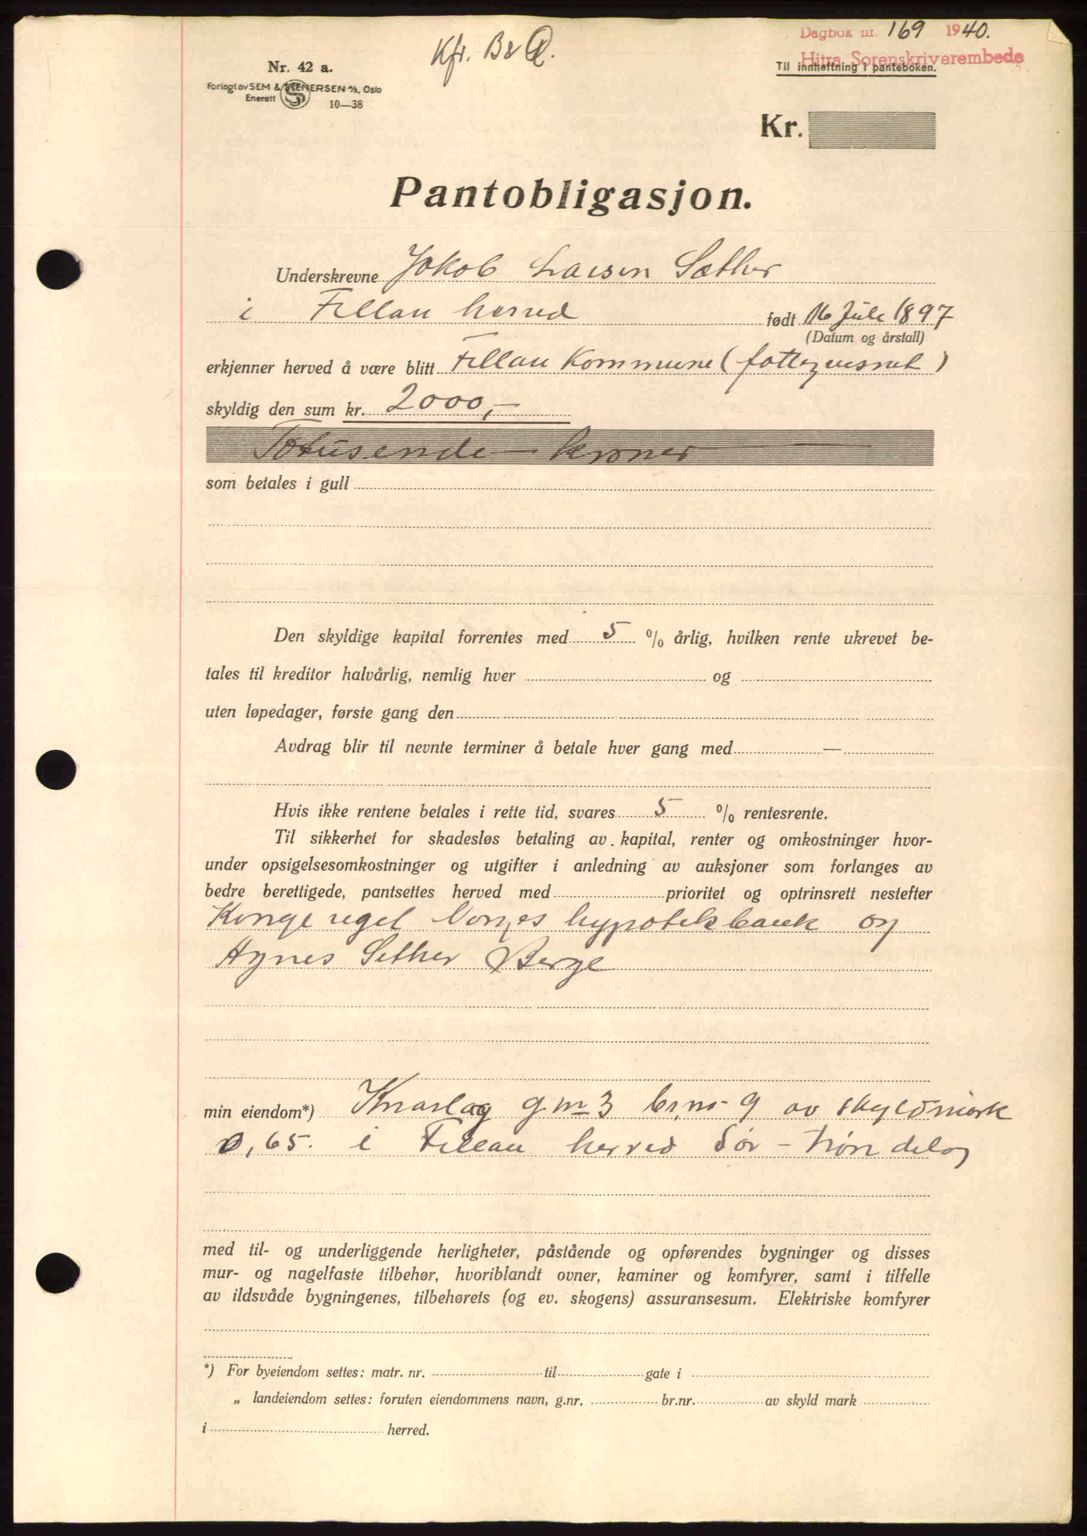 Kfr. B2
Dagbok nr. 169 1940.
Hitra Sorenskriverembede
Til innheftning i panteboken.
Nr. 42 a.
Forlagt av SEM & STENERSEN A/S, Oslo
Enerett 10—38
Kr.
Pantobligasjon.
Underskrevne Jakob Larsen Sæther
i Fillan herred født 16 Juli 1897
(Datum og årstall)
erkjenner herved å være blitt Fillan Kommune (fattigvesnet)
skyldig den sum kr. 2000,-
Totusende kroner
som betales i gull
Den skyldige kapital forrentes med 5 % årlig, hvilken rente ukrevet be-
tales til kreditor halvårlig, nemlig hver og
uten løpedager, første gang den
Avdrag blir til nevnte terminer å betale hver gang med —
Hvis ikke rentene betales i rette tid, svares 5 % rentesrente.
Til sikkerhet for skadesløs betaling av kapital, renter og omkostninger hvor-
under opsigelsesomkostninger og utgifter i anledning av auksjoner som forlanges av
bedre berettigede, pantsettes herved med prioritet og optrinsrett nestefter
Kongeriget Norges hypotekbank og
Agnes Sether Berge
min eiendom*) Knarlag g.nr 3 br.nr 9 av skyldmark
0,65. i Fillan herred Sør-Trøndelag
med til- og underliggende herligheter, påstående og opførendes bygninger og disses
mur- og nagelfaste tilbehør, hvoriblandt ovner, kaminer og komfyrer, samt i tilfelle
av ildsvåde bygningenes, tilbehørets (og ev. skogens) assuransesum. Elektriske komfyrer
*) For byeiendom settes: matr. nr. til gate i
„ landeiendom settes: foruten eiendommens navn, g.nr. br.nr. av skyld mark
i herred.